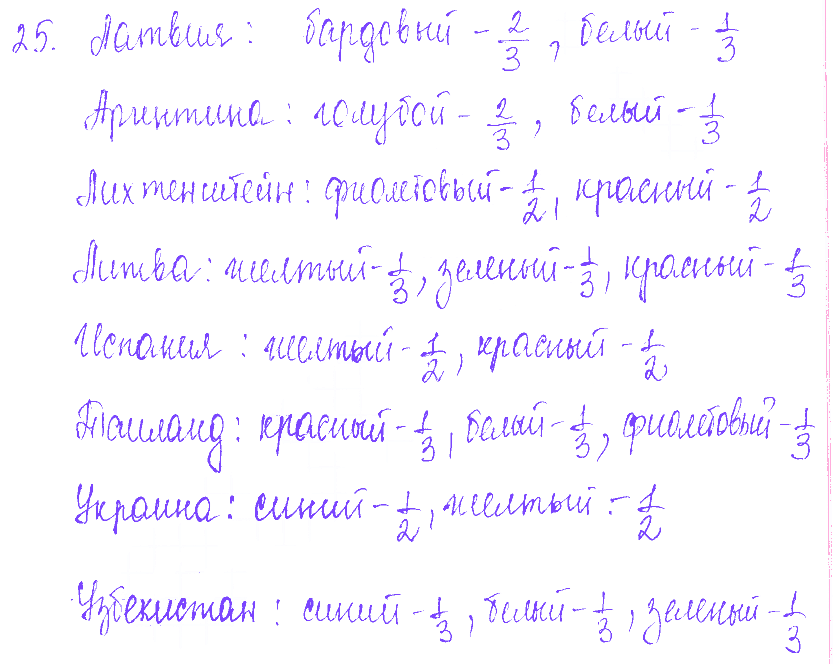 25. Латвия: бардовый - 2/3, белый - 1/3
Аргинтина: голубой - 2/3, белый - 1/3
Лихтенштейн: фиолетовый - 1/2, красный - 1/2
Литва: желтый - 1/3, зеленый - 1/3, красный - 1/3
Испания: желтый - 1/2, красный - 1/2
Таиланд: красный - 1/3, белый - 1/3, фиолетовый - 1/3
Украина: синий - 1/2, желтый - 1/2
Узбекистан: синий - 1/3, белый - 1/3, зеленый - 1/3